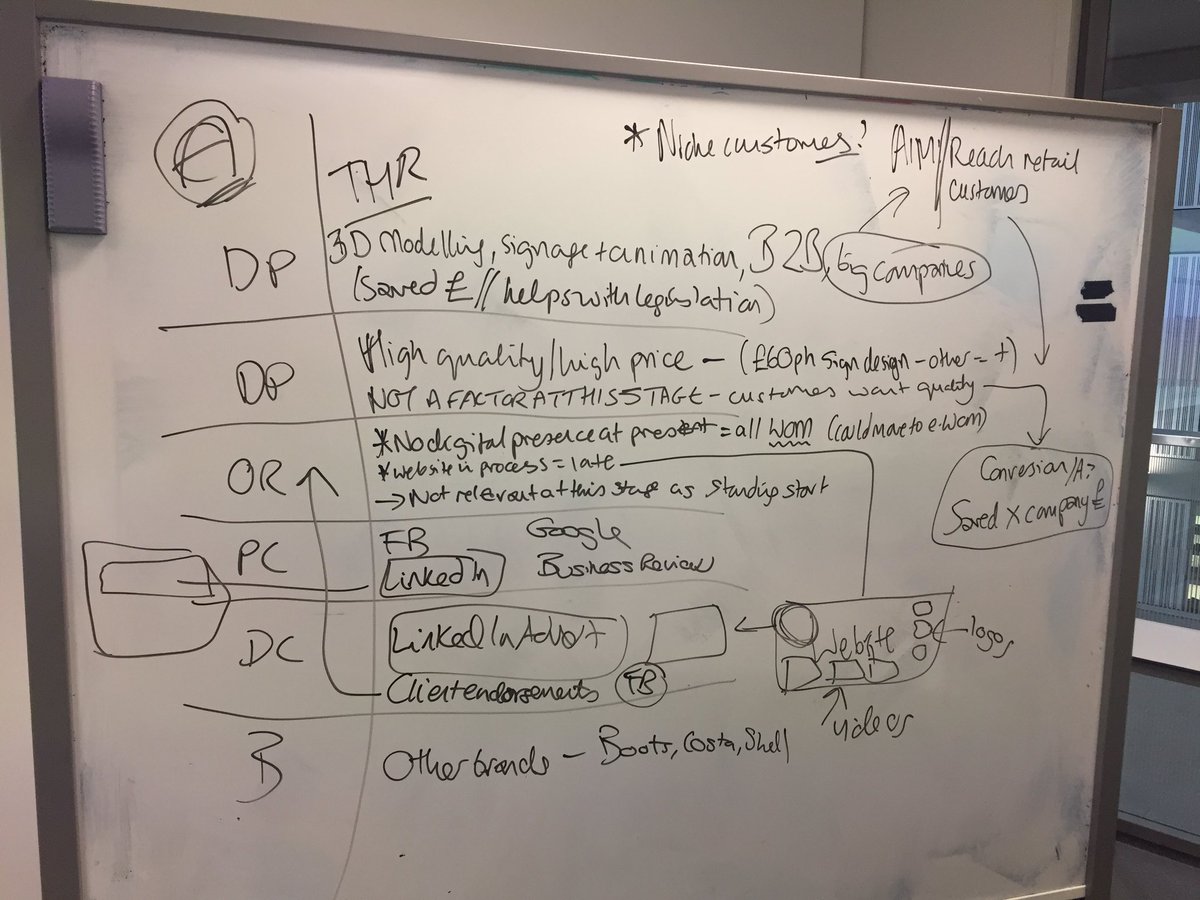 A
THR
* Niche customers?
AIM//Reach retail
customers
DP
3D modelling, signage + animation, B2B, big companies
(saved £ // helps with legislation)
DP
High quality/high price – (£60ph sign design – other = +)
NOT A FACTOR AT THIS STAGE – customers want quality
OR
* No digital presence at present = all WOM (could move to e-WOM)
* website in process = late
→ Not relevant at this stage as standing start
Conversion/A?
Saved X company £
PC
FB
LinkedIn
Google
Business Review
DC
LinkedIn Advert
Client endorsements
FB
Website
logos
videos
B
Other brands – Boots, Costa, Shell